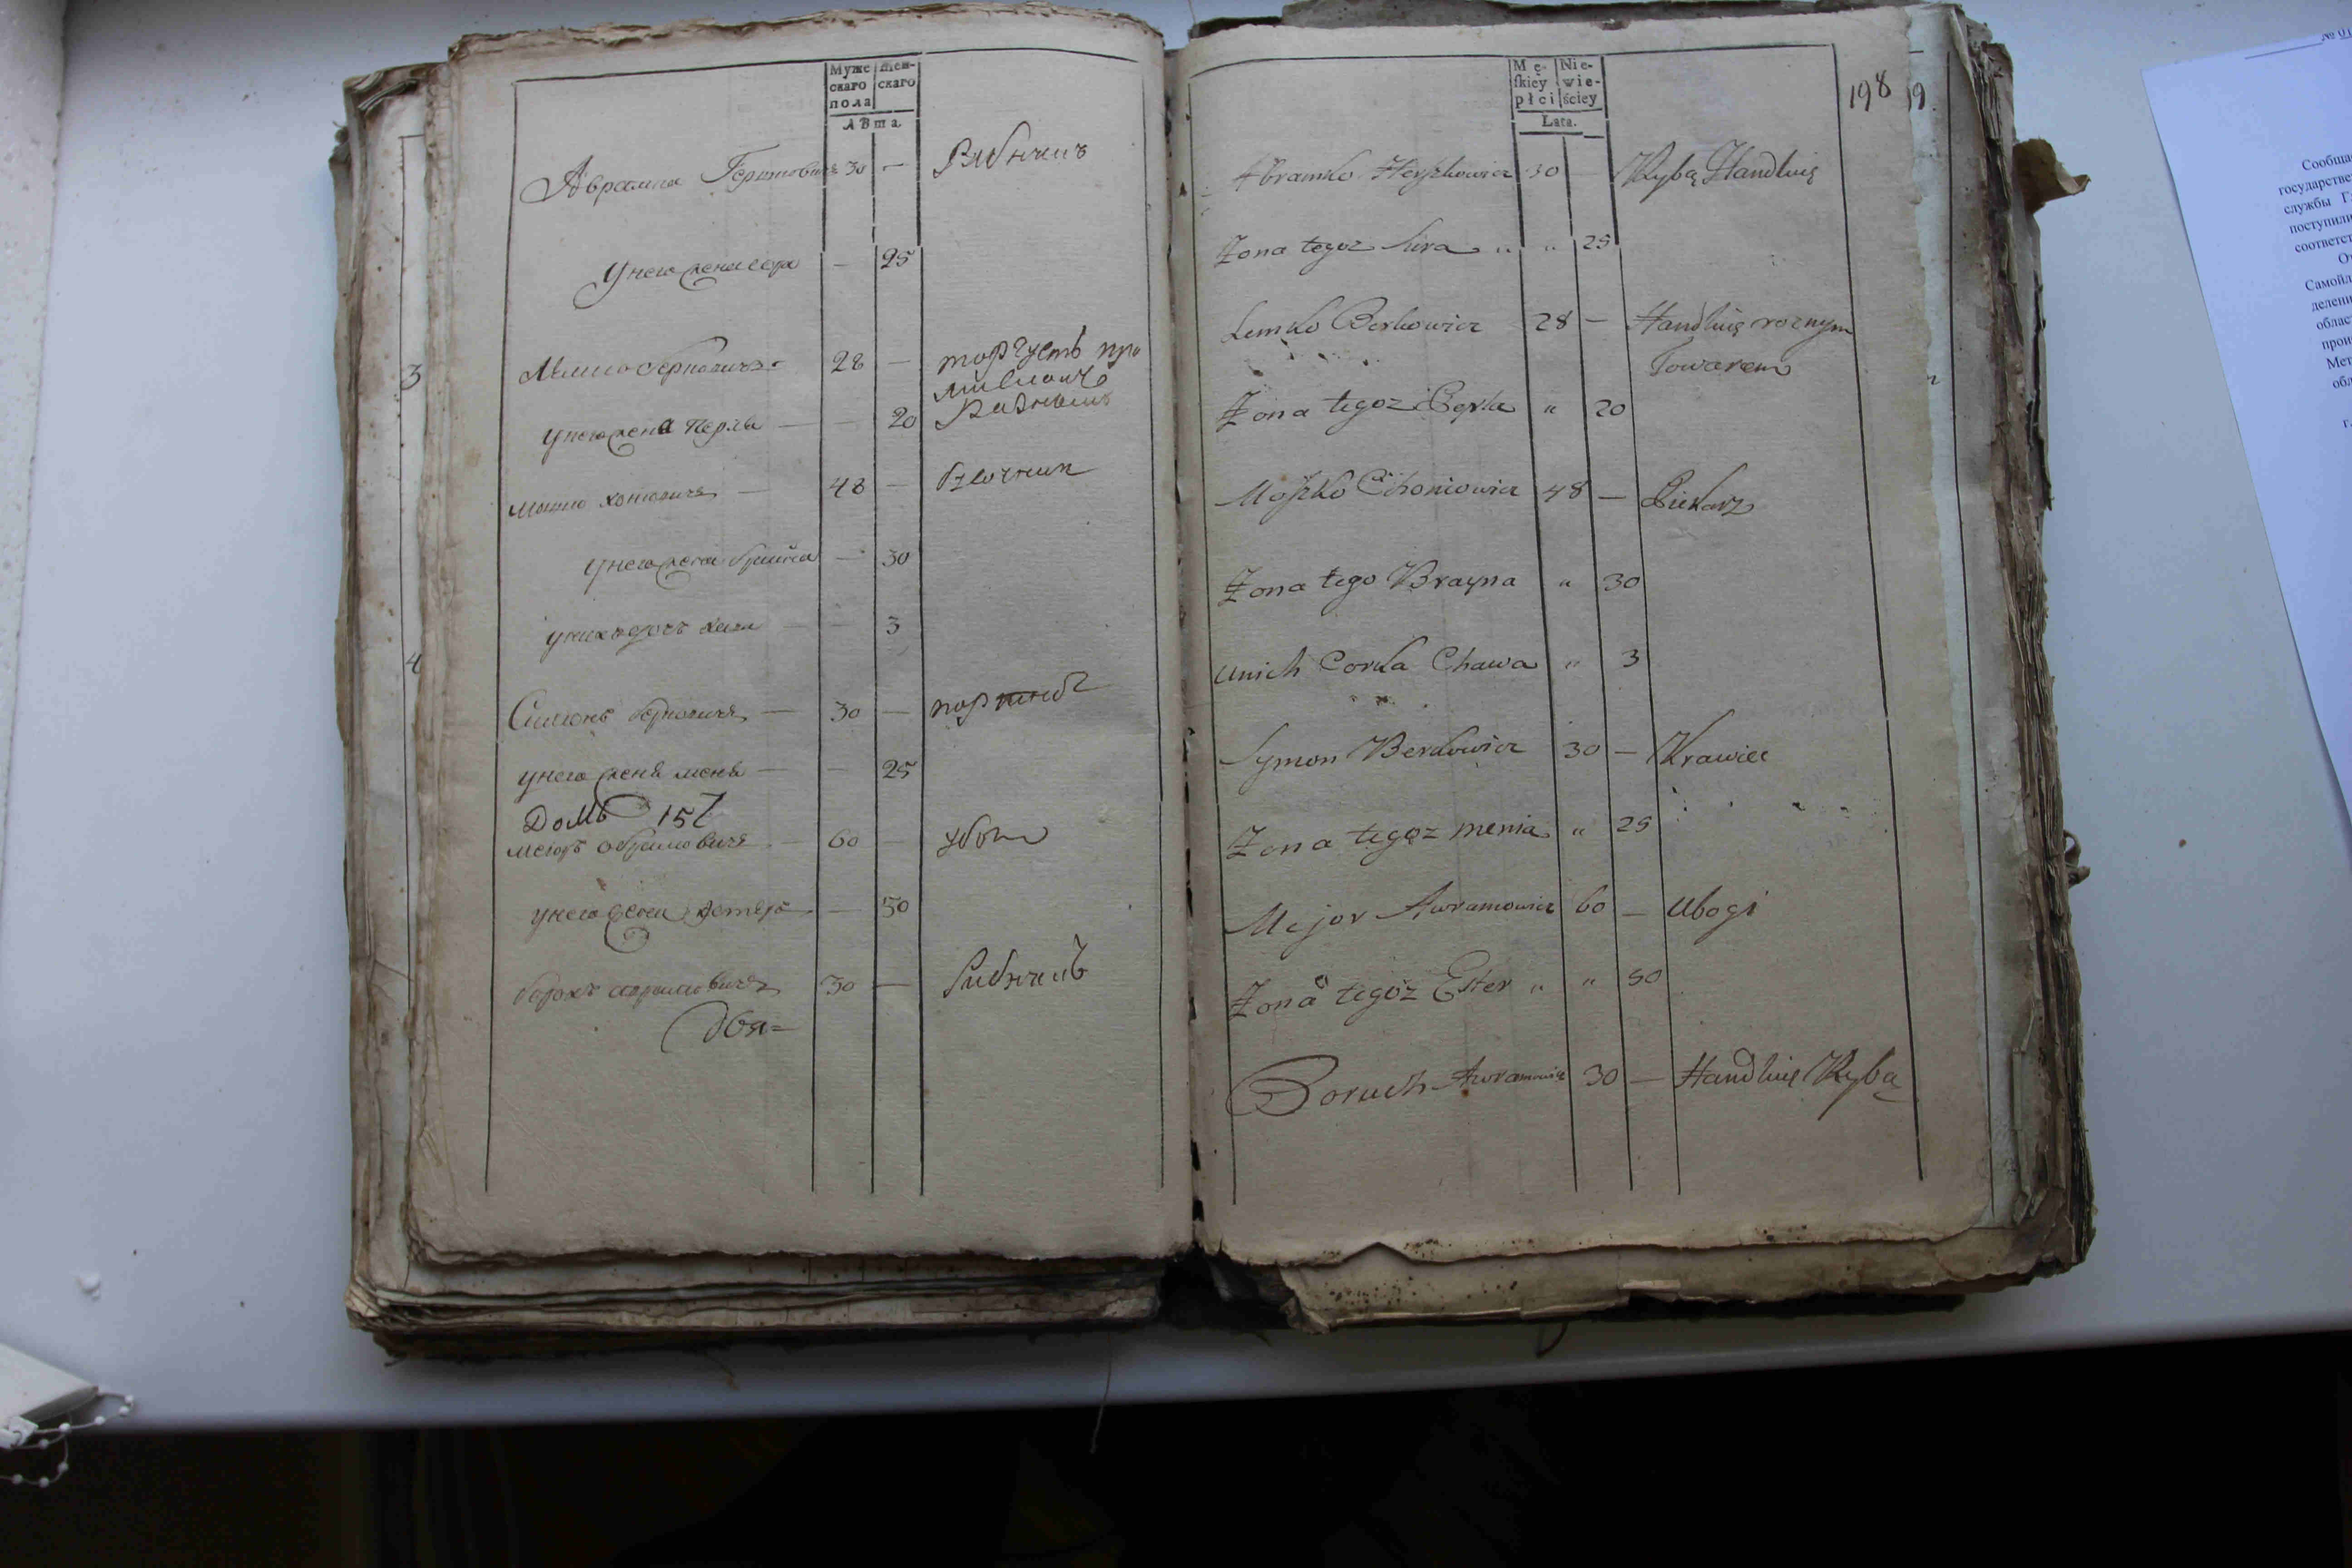 Муже
скаго
пола
Жен-
скаго
Лѣта
Аврамка Гершковичъ 30 — Рибникъ
Унего жена сора — 25
Лемко беркович 28 — торгуетъ про
20 разнымъ
унего жена перла —
мошко хонович — 48 —
Унего жена брайна — 30
уних дочь хава — — 3
Симонъ беркович — 30 — портной
унего женя меня — — 25
Домъ 157
меюръ абрамович — 60 — убоги
унего жена эстеръ — 50
борохъ аврамович 30 — Рибникъ
двя=
3
4
Mę-
skiey
płci
Nie-
wie-
ściey
Lata.
198
9.
Abramko Herszkowicz 30 — Rybą Handluię
Zona tegoz Sura „ „ 25
Lemko Berkowicz 28 — Handluię roznym
Towarem
Zona tegoz Perla „ 20
Moszko Choniowicz 48 — Piekarz
Zona tego Brayna „ 30
unich Corka Chawa „ 3
Symon Berkowicz 30 — Krawiec
Zona tegoz menia „ 25
Mejor Awramowicz 60 — Ubogi
Zona tegoz Ester „ „ 50
Boruch Awramowicz 30 — Handluię Rybą
Сообща
государстве
службы Г
поступили
соответст
Самойл
делени
облас
прои
Мет
обл
г.